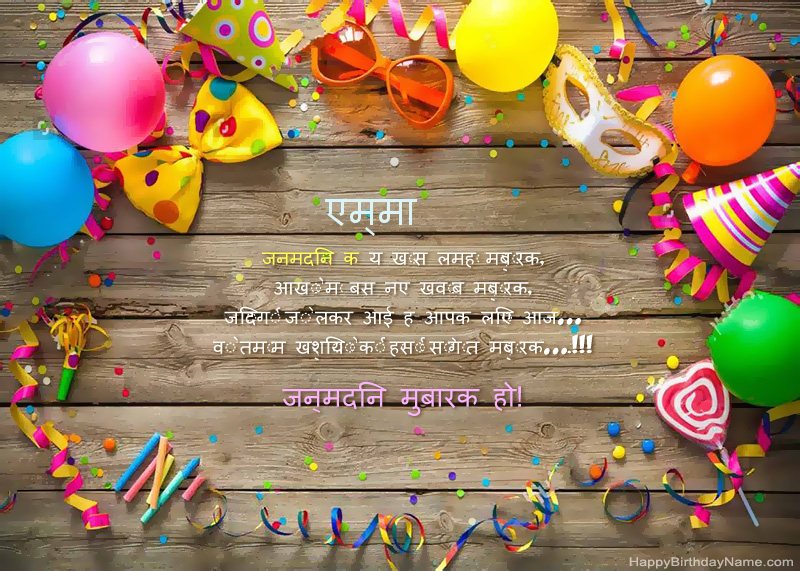 एम्मा
जनमदिन क य ख़ास लमह मबारक,
आखों म बस नए ख्वाब मबारक,
जदिंगी जो लेकर आई ह आपक लिए आज...
वो तमाम ख़शियों की हसीं सौगात मबारक...!!!
जन्मदिन मुबारक हो!
HappyBirthdayName.com